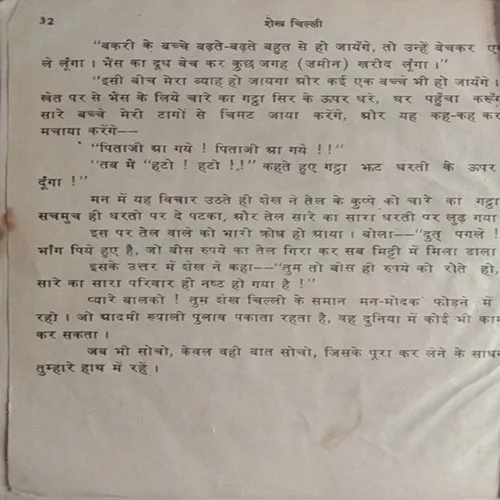 32 शेख चिल्ली
"बकरी के बच्चे बढ़ते-बढ़ते बहुत से हो जायेंगे, तो उन्हें बेचकर
ले लूंगा । भैंस का दूध बेच कर कुछ जगह (जमीन) खरीद लूंगा ।"
"इसी बीच मेरा ब्याह हो जायगा और कई एक बच्चे भी हो जायेंगे ।
खेत पर से भैंस के लिये चारे का गट्ठा सिर के ऊपर धरे, घर पहुँचा
सारे बच्चे मेरी टागों से चिमट जाया करेंगे, और यह कह-कह कर
मचाया करेंगे——
"पिताजी आ गये ! पिताजी आ गये !!"
"तब में "हटो ! हटो !!" कहते हुए गट्ठा झट धरती के ऊपर
दूंगा !"
मन में यह विचार उठते ही शेख ने तेल के कुप्पे को चारे का गट्ठा
सचमुच ही धरती पर दे पटका, और तेल सारे का सारा धरती पर लुढ़ गया
इस पर तेल वाले को भारी क्रोध हो आया । बोला—"दुत् पगले !
भाँग पिये हुए है, जो बीस रुपये का तेल गिरा कर सब मिट्टी में मिला डाला
इसके उत्तर में शेख ने कहा—"तुम तो बीस ही रुपये को रोते हो,
सारे का सारा परिवार ही नष्ट हो गया है !"
प्यारे बालको ! तुम शेख चिल्ली के समान मन-मोदक फोड़ने में
रहो । जो आदमी रूपाली पुलाव पकाता रहता है, वह दुनिया में कोई भी काम
कर सकता ।
जब भी सोचो, केवल वही बात सोचो, जिसके पूरा कर लेने के साधन
तुम्हारे हाथ में रहें ।